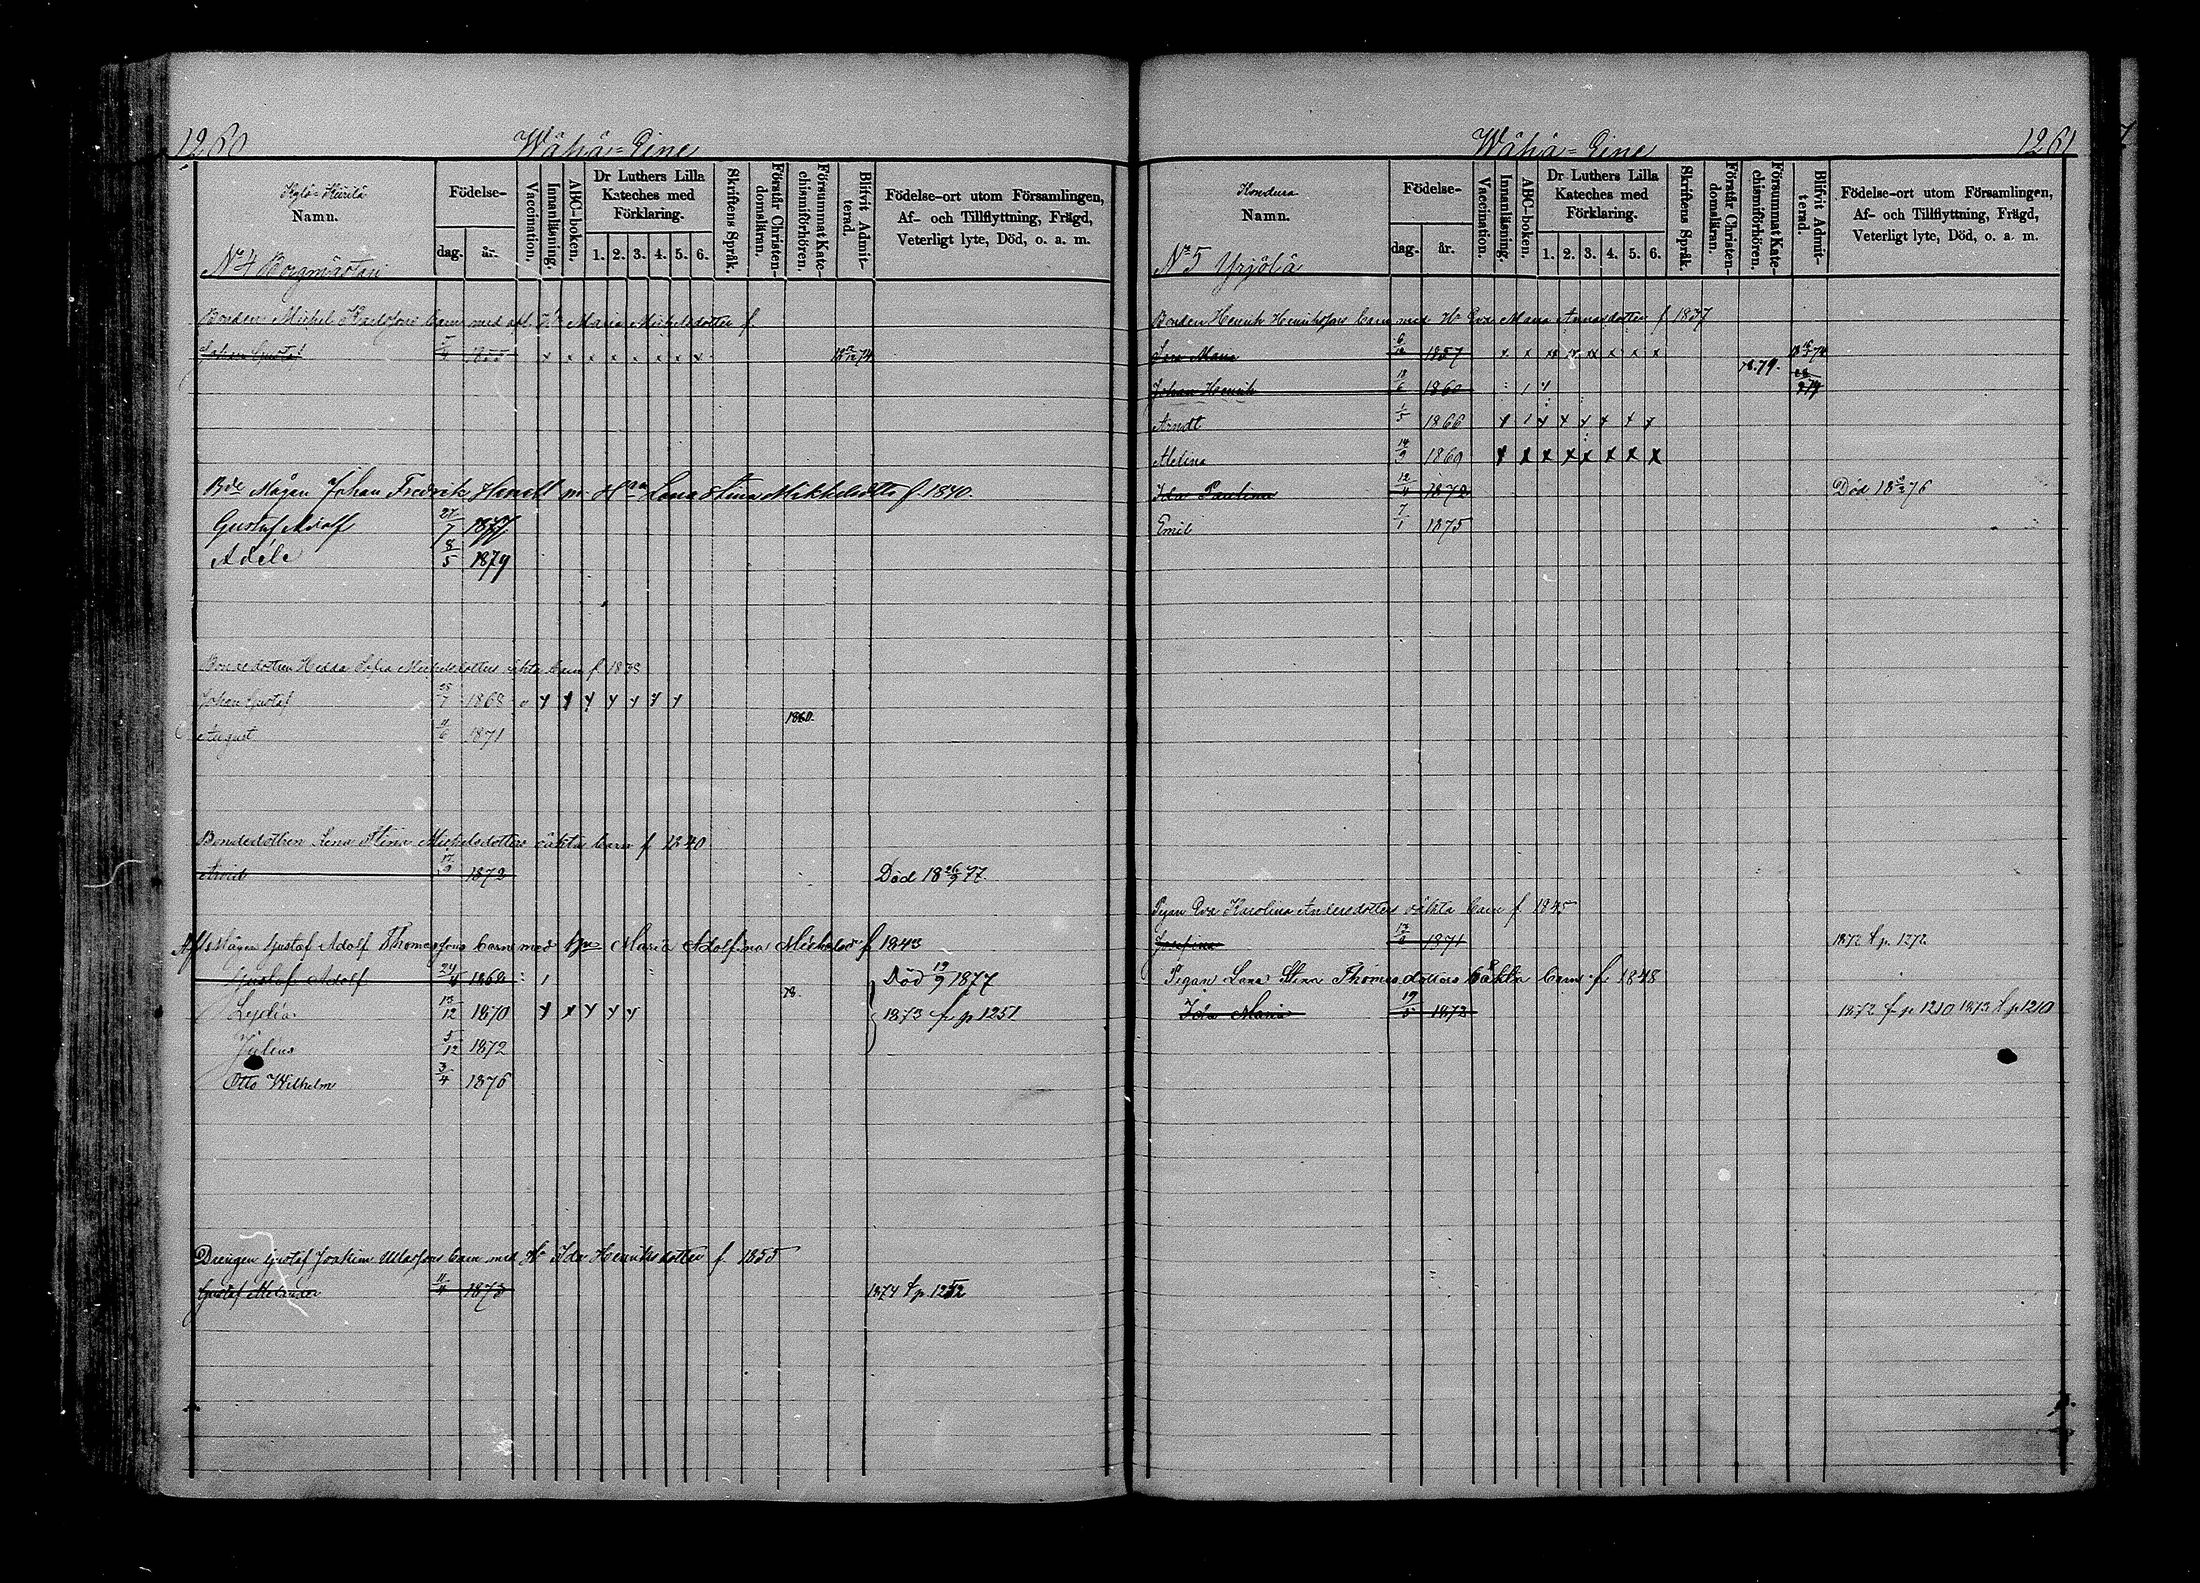 1260 Wähä=Eine
Namn.
Födelse-
dag. år.
Vaccination.
Innanläsning.
ABC-boken.
Dr Luthers Lilla Kateches med Förklaring.
1. 2. 3. 4. 5. 6.
Skriftens Språk.
Förstår Christendomsläran.
Försummat Katechismiförhören.
Blifvit Admitterad.
Födelse-ort utom Församlingen,
Af- och Tillflyttning, Frägd,
Veterligt lyte, Död, o. a. m.
No 4 Borgmästari
Bonden Michel barn med H Maria Michelsdotter f.
Johan Gustaf 1855 x x x x x x x x
Bde Mågen Johan Fredrik m Hna Lena Stina Mikkelsdotter f. 1840.
Gustaf Adolf 27/7 1877
Adéle 8/5 1879
Bondedottren Hedda Sofia Michelsdotters oäkta barn f 1838
Johan Gustaf 1868
1880.
August 11/6 1871
Bondedottren Lena Stina Michelsdotters oäkta barn f 1840
1872 Död 18 26/9 77.
Mågen Gustaf Adolf Thomassons barn med hu Maria Adolfina Michelsd f 1843
Gustaf Adolf 1868 Död 19/9 1877
78.
Lydia 13/12 1870 1873 fr p 1251
Julius 5/12 1872
Otto Wilhelm 3/4 1876
Drengen Gustaf Joakim barn med H Ida Henriksdotter f. 1855
Gustaf 11/4 1873 1874 t p. 1252
Wähä=Eine 1261
Namn.
Födelse-
dag. år.
Vaccination.
Innanläsning.
ABC-boken.
Dr Luthers Lilla Kateches med Förklaring.
1. 2. 3. 4. 5. 6.
Skriftens Språk.
Förstår Christendomsläran.
Försummat Katechismiförhören.
Blifvit Admitterad.
Födelse-ort utom Församlingen,
Af- och Tillflyttning, Frägd,
Veterligt lyte, Död, o. a. m.
No 5 Yrjölä
Bonden Henrik Henrikssons barn med H Eva Maria f 1837
Maria 1857
78. 79.
Johan Henrik 18/6 1860
Arndt 1/5 1866
Aletina 14/9 1869
Ida Paulina 12/4 1872 Död 18 76
Emil 7/1 1875
Pigan Eva Karolina Andersdotters oäkta barn f 1845
Josefina 1871 1872 t p. 1272
Pigan Lena Stina Thomasdotters oäkta barn f. 1848
Ida Maria 19/5 1872 1872 f p. 1210 1873 t p. 1210